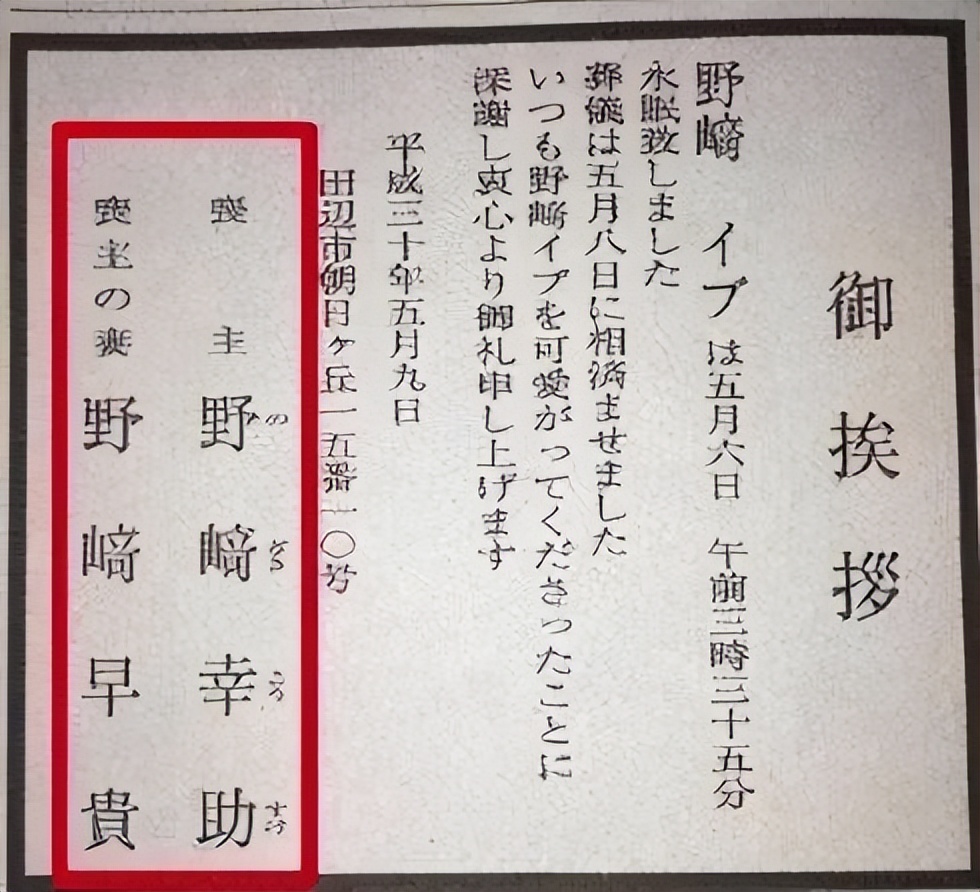 御挨拶
野﨑 イブ は五月六日 午前三時三十五分
永眠致しました
葬儀は五月八日に相済ませました
いつも野﨑イブを可愛がってくださったことに
深謝し衷心より御礼申し上げます
平成三十年五月九日
田辺市朝日ヶ丘一五番一〇号
喪 主 野﨑幸助
のざきこうすけ
喪主の妻 野﨑早貴